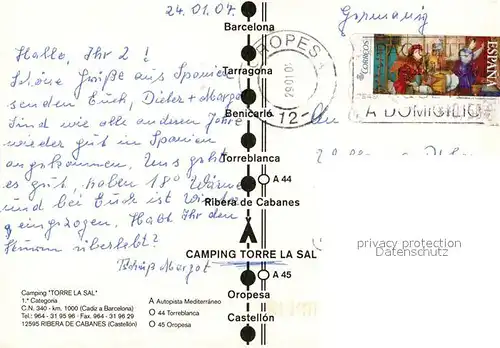 24.01.07.
Hallo, Ihr 2!
Schöne Grüße aus Spanien
senden Euch, Dieter + Margot
Sind wie alle anderen Jahre
wieder gut in Spanien
angekommen. Uns geht
es gut, haben 18° Wärme
und bei Euch ist Winter
eingezogen. Habt Ihr den
Sturm überlebt?
Tschüß Margot
Camping "TORRE LA SAL"
1.ª Categoria
C.N. 340 - km. 1000 (Cadiz a Barcelona)
Tel.: 964 - 31 95 96 - Fax. 964 - 31 96 29
12595 RIBERA DE CABANES (Castellón)
A Autopista Mediterráneo
O 44 Torreblanca
O 45 Oropesa
Barcelona
Tarragona
Benicarló
Torreblanca
A 44
Ribera de Cabanes
CAMPING TORRE LA SAL
A 45
Oropesa
Castellón
OROPESA
12
Germany
CORREOS
ESPAÑA
A DOMICILIO
An
privacy protection
Datenschutz